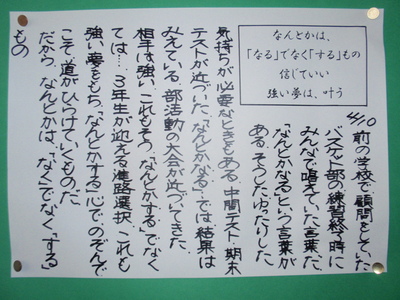 なんとかは、
「なる」でなく「する」もの
信じていい
強い夢は、叶う
4/10
前の学校で顧問をしていた
バスケット部の練習終了時に
みんなで唱えていた言葉だ。
「なんとかなる」という言葉が
ある。そうしたゆったりした、
気持ちが必要なときもある。中間テスト、期末
テストが近づいた。「なんとかなる」では結果は
みえている。部活動の大会が近づいてきた。
相手は強い。これもそう。「なんとかする」でなく
ては…。3年生が迎える進路選択。これも
強い夢をもち、「なんとかする」心でのぞんで
こそ、道がひらけていくものだ。
だから、なんとかは、「なる」でなく、「する」
もの